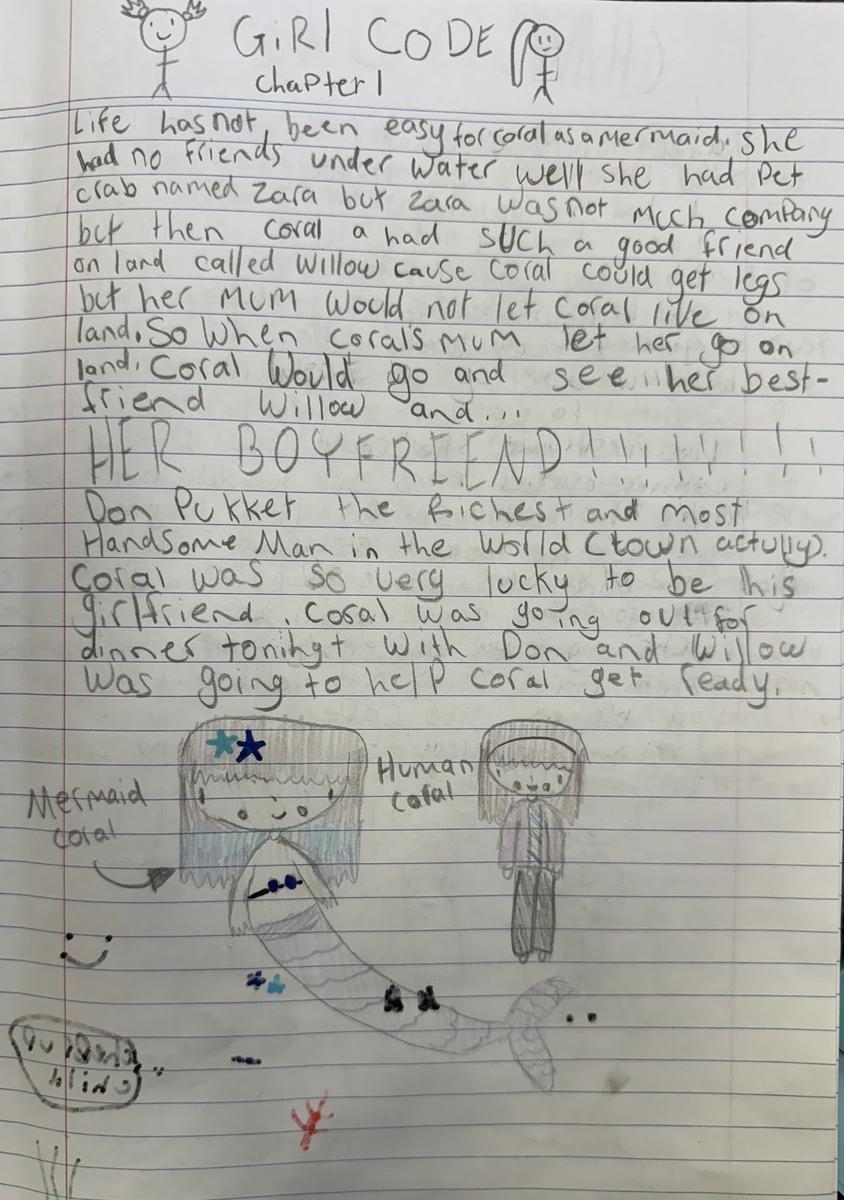 GiRl CODE
Chapter 1
Life has not been easy for coral as a mermaid. she
had no friends under water well she had Pet
crab named Zara but Zara was not much company
but then coral a had SUCH a good friend
on land called Willow cause coral could get legs
but her MUM Would not let coral live on
land. So When coral's MUM let her go on
land. Coral Would go and see her best-
friend Willow and...
HER BOYFRIEEND!!!!!!!!!
Don Pukker the richest and most
Handsome Man in the World (town actully).
Coral was so very lucky to be his
girlfriend. Coral was going out for
dinner tonihgt with Don and Willow
Was going to help coral get ready.
Mermaid
coral
Human
coral